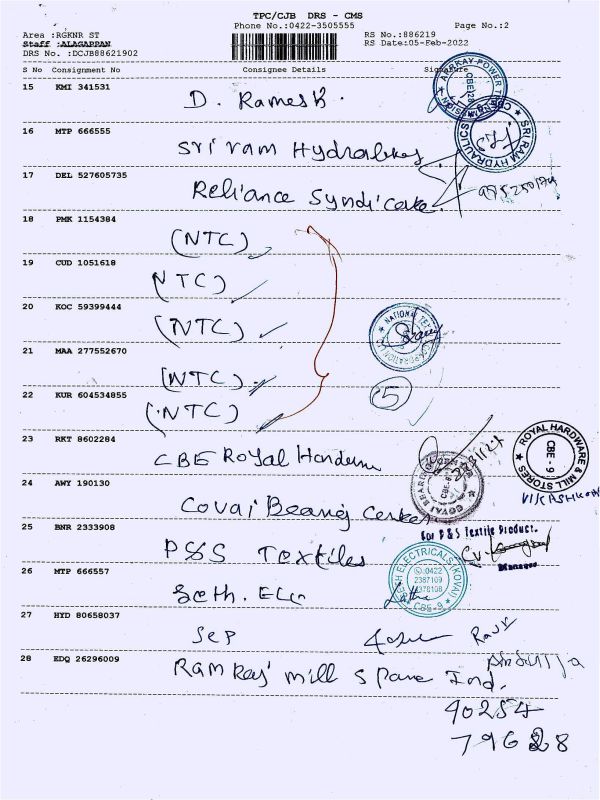 TPC/CJB DRS - CMS
Phone No.:0422-3505555
Page No.:2
Area :RGKNR ST
RS No.:886219
Staff :ALAGAPPAN
RS Date:05-Feb-2022
DRS No. :DCJB88621902
S No Consignment No Consignee Details Signature
15 KMI 341531
D. Ramesh.
16 MTP 666555
Sri ram Hydraulics
SRI RAM HYDRAULICS
17 DEL 527605735
Reliance Syndicate
18 PMK 1154384
(NTC)
19 CUD 1051618
NTC)
20 KOC 59399444
(NTC)
21 MAA 277552670
(NTC)
22 KUR 604534855
(NTC)
5
23 RKT 8602284
CBE Royal Hardware
ROYAL HARDWARE & MILL STORES
CBE - 9
24 AWY 190130
Covai Bearing Center
25 BNR 2333908
For P & S Textile Product.
P&S Textiles
Manager
26 MTP 666557
Seth. Elec
ELECTRICALS (KOVAI)
0422
2387109
CBE-9
27 HYD 80658037
Sep
28 EDQ 26296009
Ramraj mill Spare Ind.
90254
79628